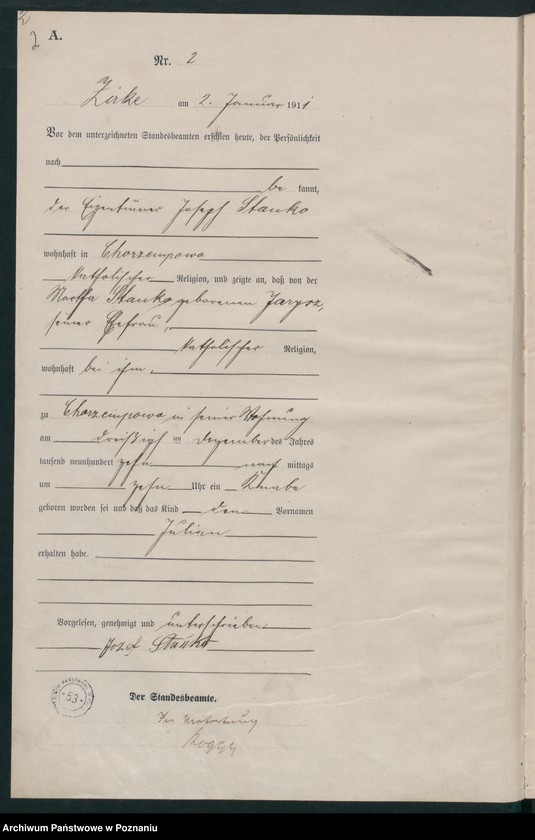 2
A.
Nr. 2
Zirke am 2. Januar 1911
Vor dem unterzeichneten Standesbeamten erschien heute, der Persönlichkeit
nach
be kannt,
der Eigentümer Joseph Stanko
wohnhaft in Chorzempowo
katholischer Religion, und zeigte an, daß von der
Stanko geborenen Jarysz,
seiner Ehefrau,
katholischer Religion,
wohnhaft bei ihm,
zu Chorzempowo in seiner Wohnung
am dreißigsten Dezember des Jahres
tausend neunhundert zehn nach mittags
um zehn Uhr ein Knabe
geboren worden sei und daß das Kind den Vornamen
Julian
erhalten habe.
Vorgelesen, genehmigt und unterschrieben
Jozef Stanko
53
Der Standesbeamte.
In Vertretung
Archiwum Państwowe w Poznaniu